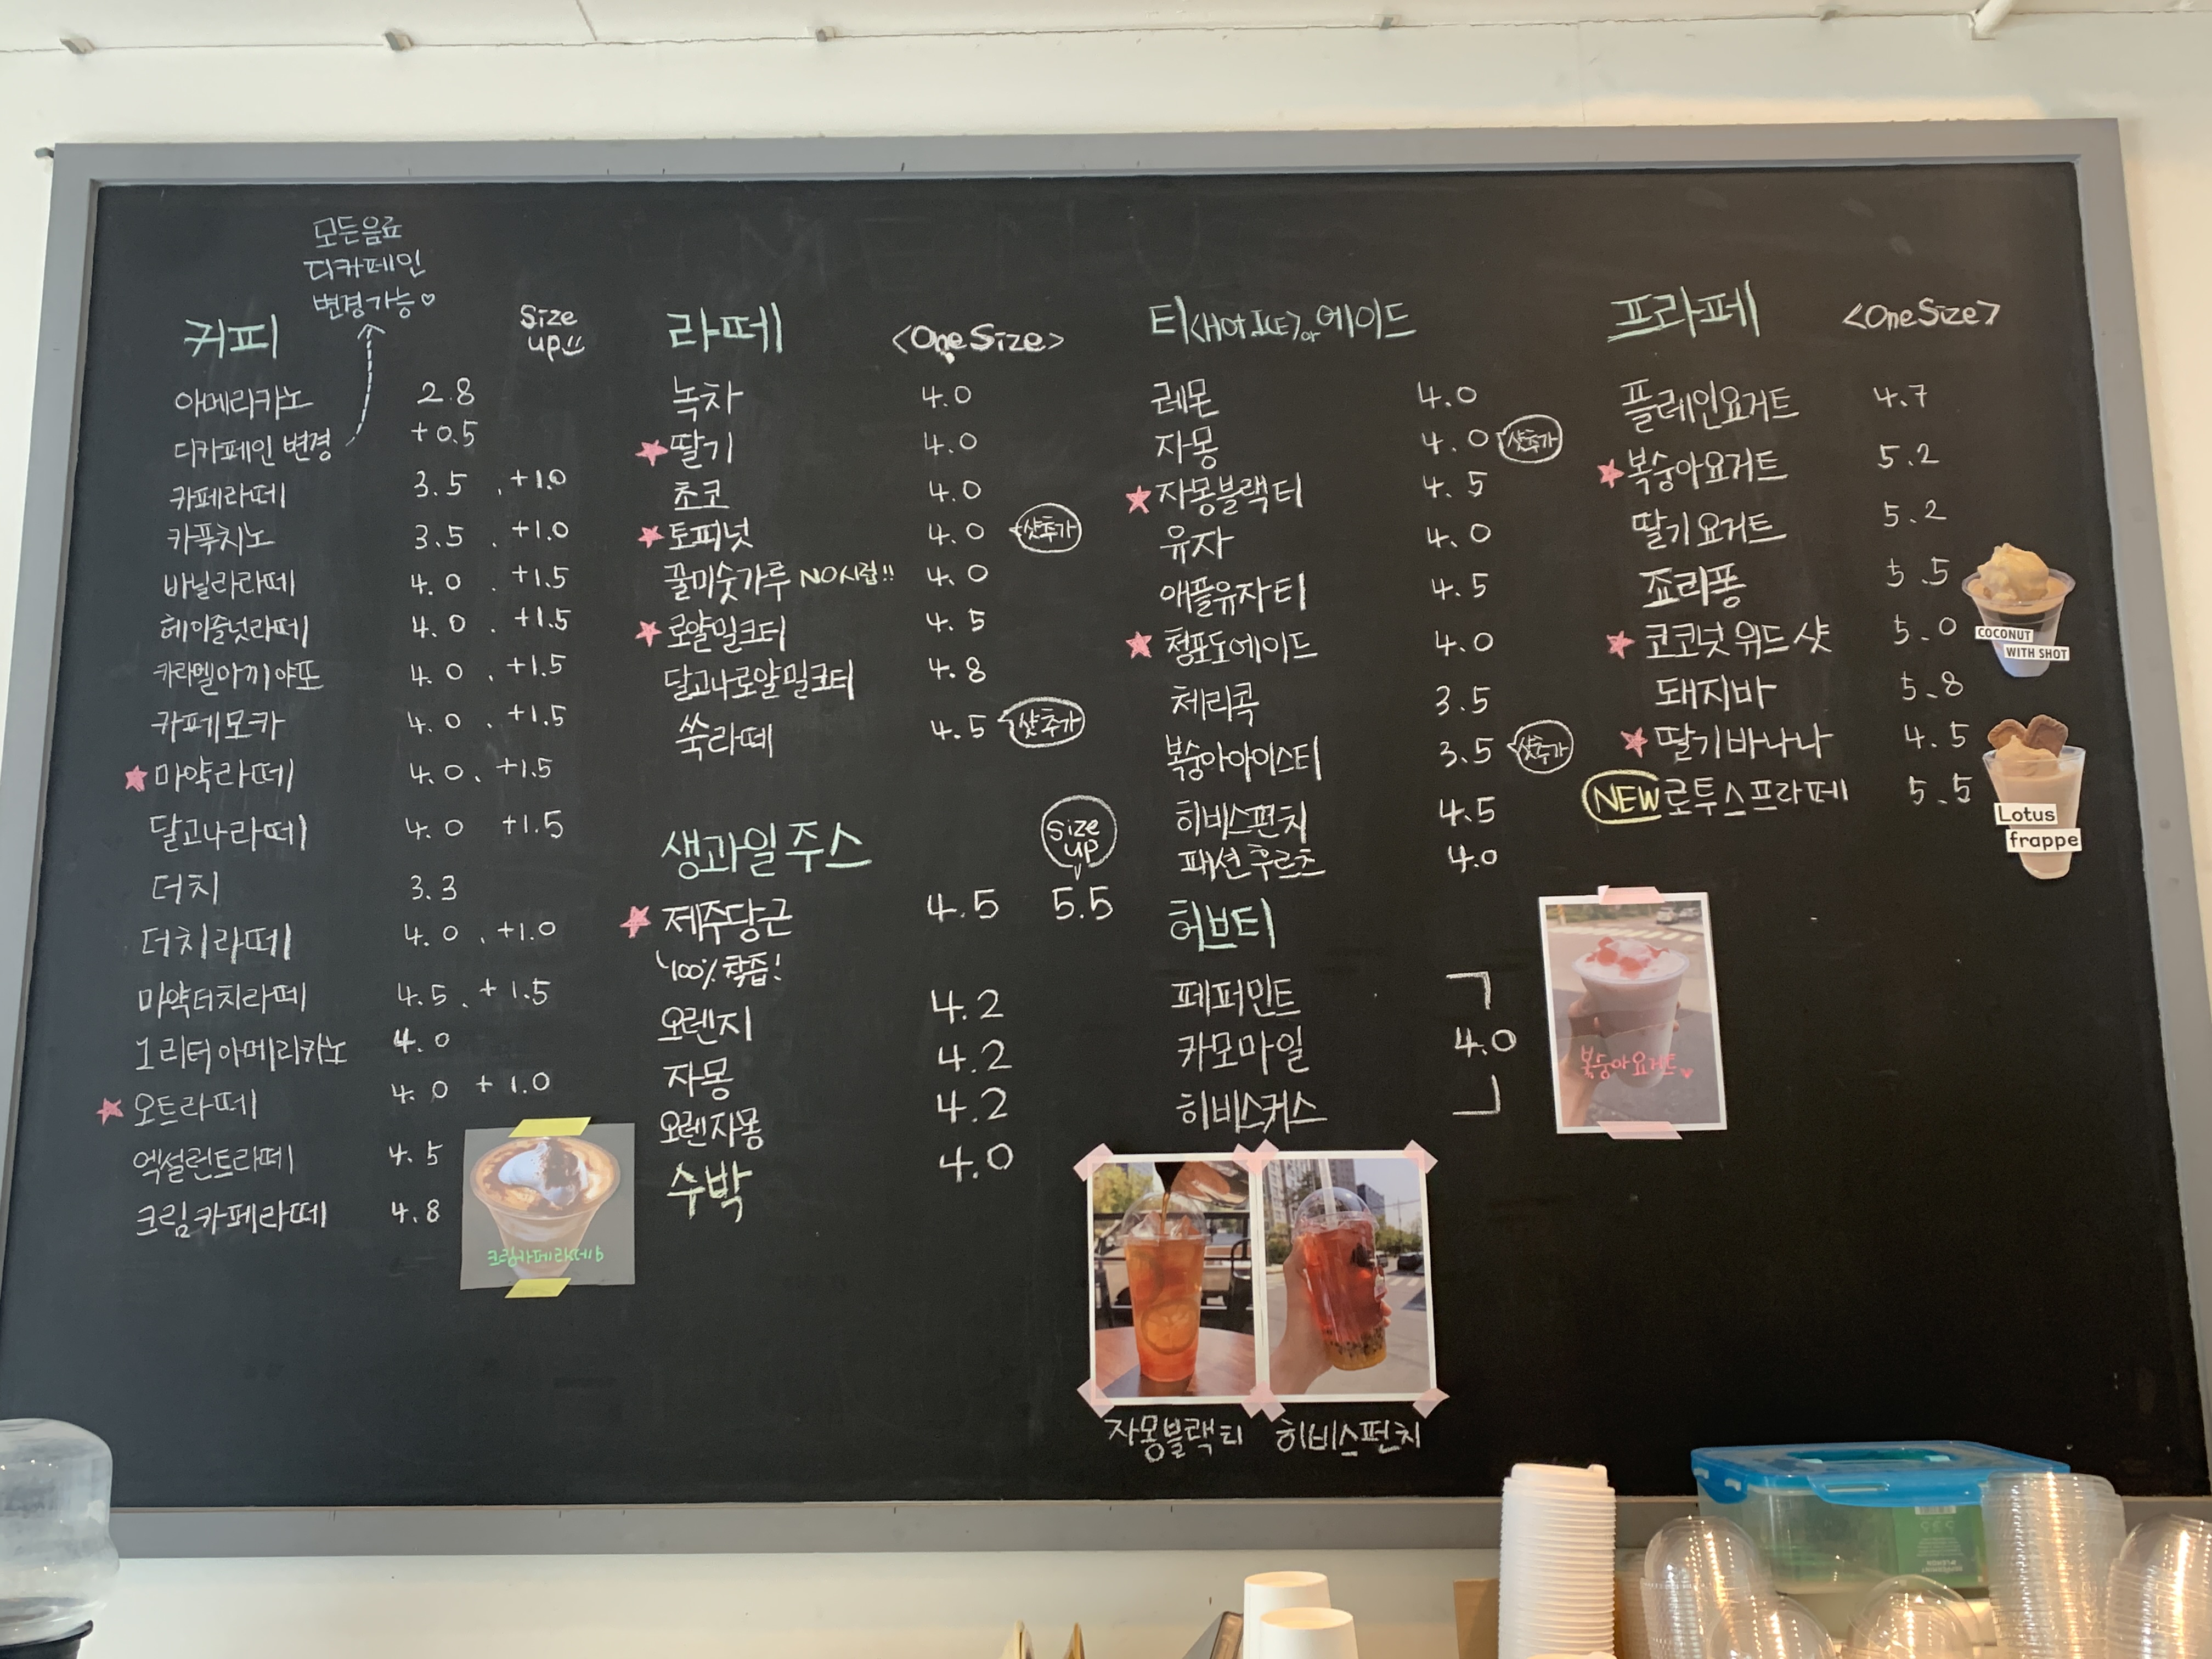 모든음료
디카페인
변경가능♡
커피
Size
up
아메리카노 2.8
디카페인 변경 +0.5
카페라떼 3.5 , +1.0
카푸치노 3.5 . +1.0
바닐라라떼 4.0 . +1.5
헤이즐넛라떼 4.0 . +1.5
카라멜마끼야또 4.0 . +1.5
카페모카 4.0 . +1.5
마약라떼 4.0 . +1.5
달고나라떼 4.0 +1.5
더치 3.3
더치라떼 4.0 . +1.0
마약더치라떼 4.5 . +1.5
1리터아메리카노 4.0
오트라떼 4.0 +1.0
엑설런트라떼 4.5
크림카페라떼 4.8
크림카페라떼
라떼 <One Size>
녹차 4.0
딸기 4.0
초코 4.0
토피넛 4.0 샷추가
꿀미숫가루 NO시럽!! 4.0
로얄밀크티 4.5
달고나로얄밀크티 4.8
쑥라떼 4.5 샷추가
생과일주스
Size
up
제주당근 4.5 5.5
100% 착즙!
오렌지 4.2
자몽 4.2
오렌자몽 4.2
수박 4.0
티<HOT.ICE>or에이드
레몬 4.0
자몽 4.0 샷추가
자몽블랙티 4.5
유자 4.0
애플유자티 4.5
청포도에이드 4.0
체리콕 3.5
복숭아아이스티 3.5 샷추가
히비스펀치 4.5
패션후르츠 4.0
허브티
페퍼민트
카모마일 4.0
히비스커스
자몽블랙티 히비스펀치
프라페 <One Size>
플레인요거트 4.7
복숭아요거트 5.2
딸기요거트 5.2
죠리퐁 5.5
코코넛위드샷 5.0
COCONUT
WITH SHOT
돼지바 5.8
딸기바나나 4.5
NEW 로투스프라페 5.5
Lotus
frappe
복숭아요거트